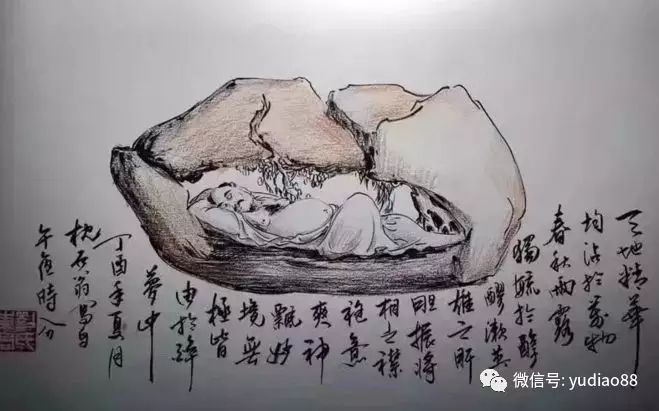 天地精華
均沾於萬物
春秋雨露
獨毓於醇
醪漱英
雄之肝
胆振將
相之襟
袍意
爽神
飄妙
境無
極皆
由於醉
夢中
丁酉年夏月
枕石翁寫自
午夜時分
微信号: yudiao88